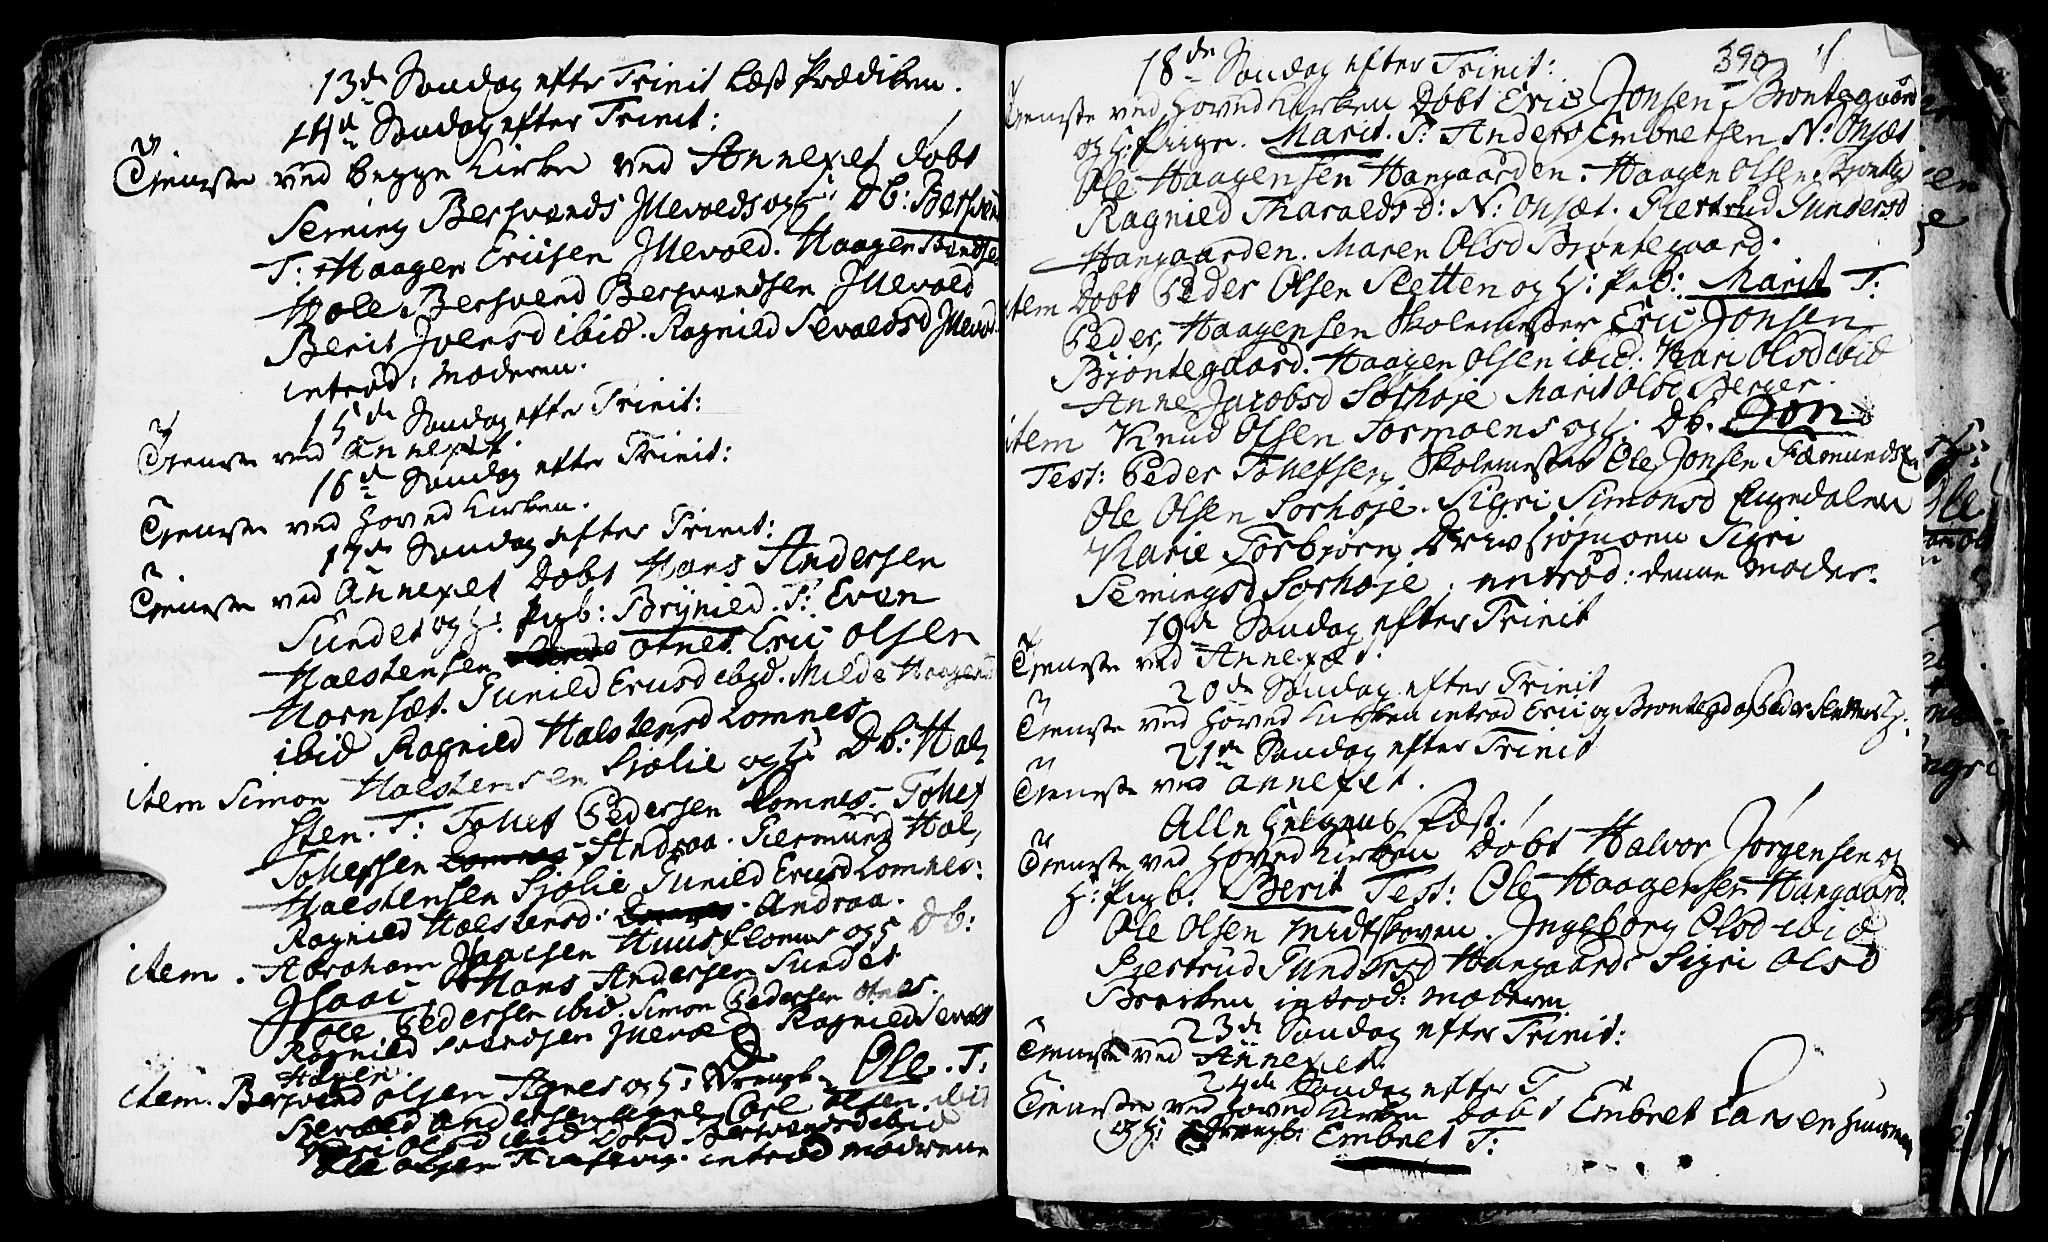 13de Søndag efter Trinit læst Prædiken.
14de Søndag efter Trinit:
Tieneste ved begge Kirker ved Annexet døbt
Seming Bersvends Illevolds og H: Db: Bersvend
T: Haagen Ericsen Illevold. Haagen
Hole. Bersvend Bersvendsen Illevold
Berit Joensd ibid. Ragnild Sevaldsd Illevold
introd: Moderen.
15de Søndag efter Trinit:
Tieneste ved Annexet.
16de Søndag efter Trinit:
Tieneste ved Hoved Kirken.
17de Søndag efter Trinit:
Tieneste ved Annexet Døbt Hans Andersen
Sundet og H: Pigb: Brynild. T: Even
Halstensen Otnes. Eric Olsen
Hornsæt. Gunild Ericsd ibid. Milde
ibid Ragnild Halstensd Lomnes
item Simon Halstensen Sjølie og H: Db: Hal
sten. T: Tollef Pedersen Lomnes. Tollef
Tollefsen Andraa. Giermund Hal
Halstensen Sjølie Gunild Ericsd Lomnes:
Ragnild Halstensd. Andraa.
item. Abraham Isaacsen Huusfloenes og H Db:
Isaac. Hans Andersen Sundet
Ole Pedersen ibid. Simon Pedersen Otnes.
Ragnild Svendsen Illevold Ragnild
item. Bersvend Olsen Agnes og H: Drengb. Ole. T:
Sevald Andersen Carl Olsen ibid
Kari Olsd ibid Dord Bersvendsd ibid
Ole Olsen introd Mødrene
390
18de Søndag efter Trinit:
Tieneste ved Hoved Kirken Døbt Eric Jonsen Brøntegaard
og H: Pige. Marit. T: Anders Embretsen N: Onsæt
Ole Haagensen Hangaarden. Haagen Olsen
Ragnild Tharaldsd: N: Onsæt. Giertrud Gundersd
Hangaarden. Maren Olsd Brøntegaard.
item Døbt Peder Olsen Sletten og H: Pb: Marit T:
Peder Haagensen Skolemester Eric Jonsen
Brøntegaard. Haagen Olsen ibid. Kari Olsd ibid
Anne Jacobsd Sorhøje Marit Olsd Berger.
item Knud Olsen Sormoens og H: Db. Jon
Test: Peder Tollefsen Skolemester Ole Jonsen
Ole Olsen Sorhøje. Sigri Simonsd Engedalen
Marie Torbjørn Drivsjømoen Sigri
Semingsd Sorhøje, introd: denne Moder.
19de Søndag efter Trinit
Tieneste ved Annexet.
20de Søndag efter Trinit
Tieneste ved Hoved Kirken introd Eric og Peder Slettens H:
21de Søndag efter Trinit
Tieneste ved Annexet.
Alle Helgens Fæst.
Tieneste ved Hoved Kirken Døbt Halvor Jørgensen og
H: Pigb. Berit Test: Ole Haagensen Hangaard
Ole Olsen Midtskoven. Ingeborg Olsd ibid
Giertrud Gundersd Hangaard: Sigri Olsd
Brecken introd: Moderen
23de Søndag efter Trinit:
Tieneste ved Annexet.
24de Søndag efter T
Tieneste ved Hoved Kirken Døbt Embret Larsen
og H: Drengb. Embret T: